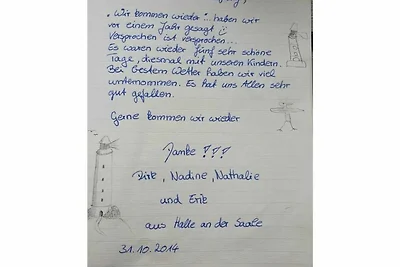 „Wir kommen wieder"... haben wir
vor einem Jahr gesagt
Versprochen ist versprochen...
Es waren wieder fünf sehr schöne
Tage, diesmal mit unseren Kindern.
Bei bestem Wetter haben wir viel
unternommen. Es hat uns Allen sehr
gut gefallen.
Gerne kommen wir wieder
Danke ???
Dirk, Nadine, Nathalie
und Erik
aus Halle an der Saale
31.10.2014